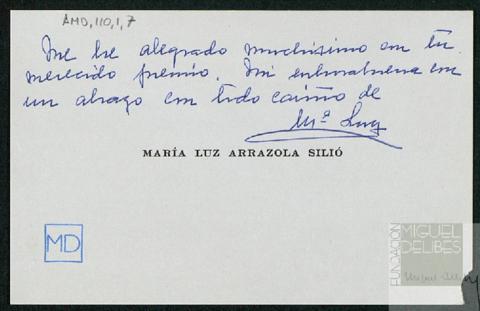 AMD,110,1,7
Me he alegrado muchísimo con tu
merecido premio. Mi enhorabuena con
un abrazo con todo cariño de
Mª Luz
MARÍA LUZ ARRAZOLA SILIÓ
MD
FUNDACIÓN
MIGUEL
DELIBES